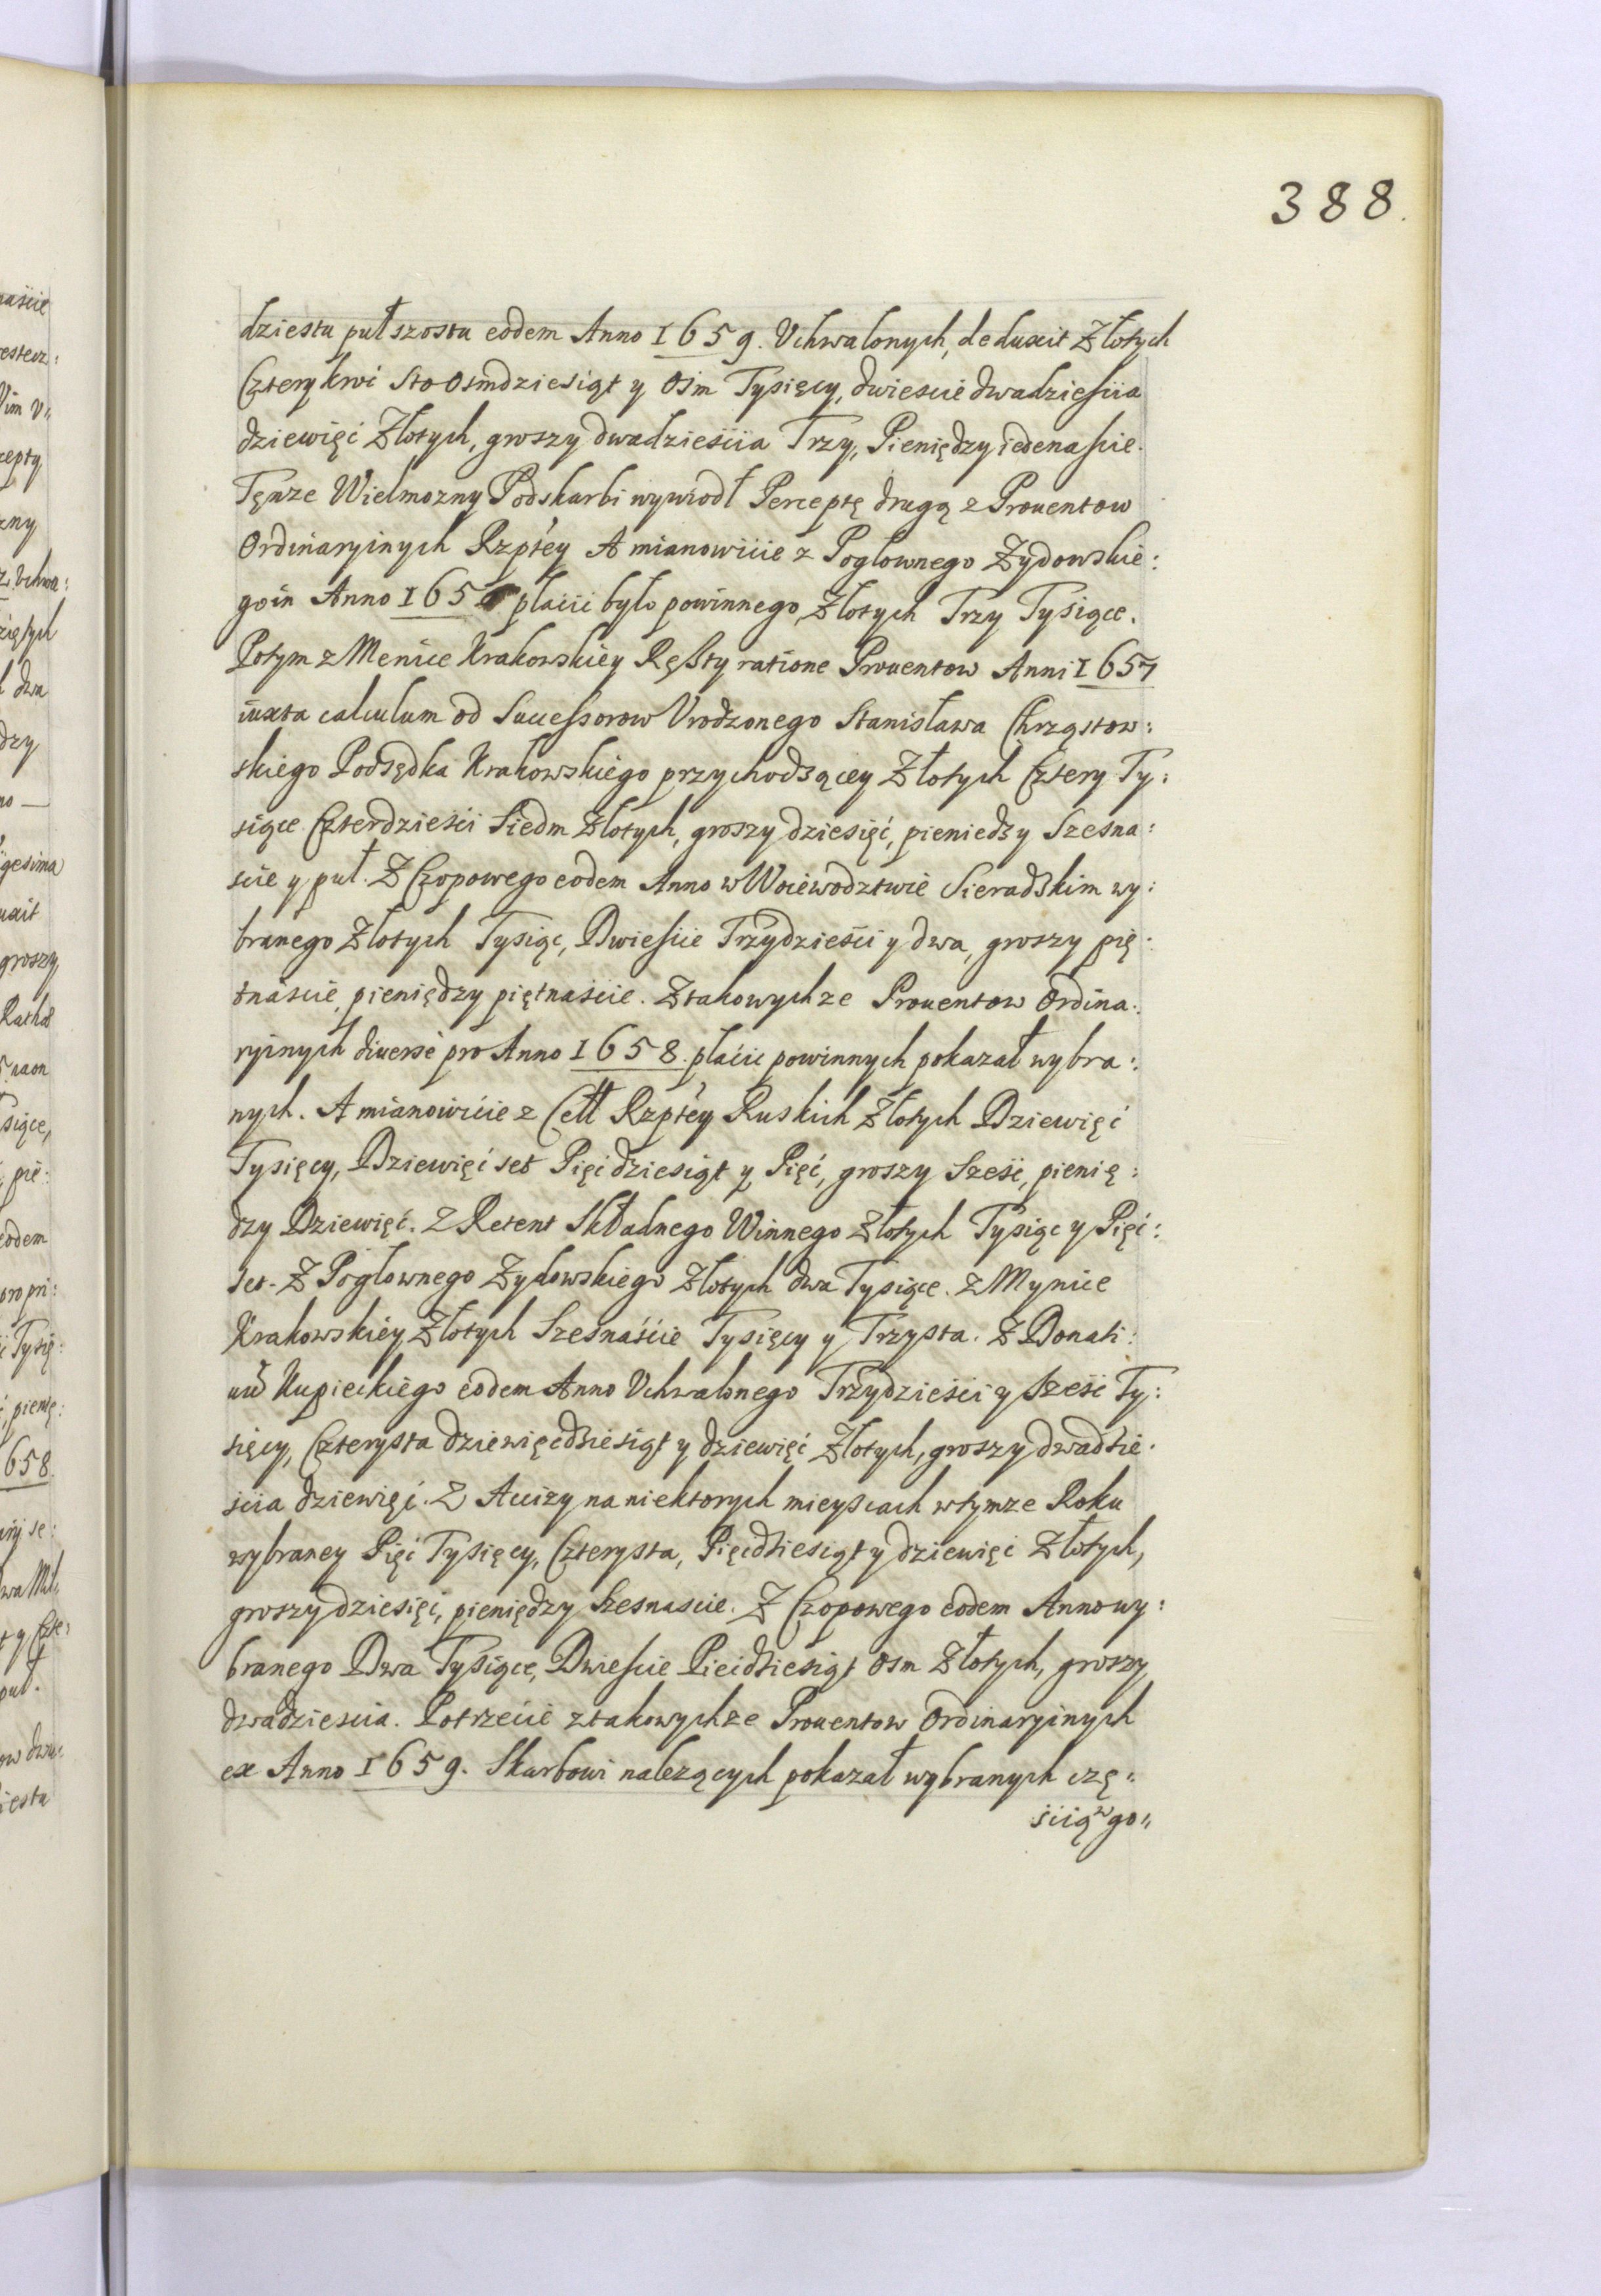 388.
dziestu puł szosta eodem Anno 1659. Uchwalonych, deduxit Złotych
Cztery kroć Sto Osmdziesiąt y Osm Tysięcy, dwieście dwadzieścia
dziewięć Złotych, groszy dwadzieścia Trzy, Pieniędzy iedenaście.
Tęnze Wielmozny Podskarbi wywiodł Perceptę drugą z Prouentow
Ordinaryinych Rzptey A mianowicie z Poglownego Zydowskie:
go in Anno 165 płacić było powinnego Złotych Trzy Tysiące.
Potym z Menice Krakowskiey Ręszty ratione Prouentow Anni 1657
iuxta calculum od Successorow Vrodzonego Stanisława Chrząstow:
skiego Podsędka Krakowskiego przychodzącey Złotych Cztery Ty:
siące Czterdzieści Siedm Złotych, groszy dziesięć, pieniedzy Szesna:
scie y puł. Z Czopowego eodem Anno w Woiewodztwie Sieradzkim wy:
branego Złotych Tysiąc, Dwieście Trzydzieści y dwa, groszy pię:
tnaście, pieniędzy piętnaście. Z takowychze Prouentow Ordina:
ryinych diverse pro Anno 1658. płacic powinnych pokazał wybra:
nych. A mianowicie z Cełł Rzptey Ruskich Złotych Dziewięć
Tysięcy, Dziewięć set Pięćdziesiąt y Pięć, groszy Sześć, pienię:
dzy Dziewięć. Z Retent Składnego Winnego Złotych Tysiąc y Pięć:
set. Z Pogłownego Zydowskiego Złotych dwa Tysiące. z Mynice
Krakowskiey Złotych Szesnaście Tysięcy y Trzysta. Z Donati:
uu Kupieckiego eodem Anno Vchwalonego Trzydzieści y Sześć Ty:
sięcy, Czterysta dziewięcdziesiąt y dziewięć Złotych, groszy dwadzie:
ścia dziewięć. Z Accizy na niektorych mieyscach w tymze Roku
wybraney Pięć Tysięcy, Czterysta, Pięcdziesiąt y dziewięć Złotych,
groszy dziesięć, pieniędzy Szesnascie. Z Czopowego eodem Anno wy:
branego Dwa Tysiące, Dwieście Piecdziesiąt Osm Złotych, groszy
dwadziescia. Potrzecie z takowychze Prouentow Ordinaryinych
ex Anno 1659. Skarbowi nalezących pokazał wybranych czę:
ścią w go: